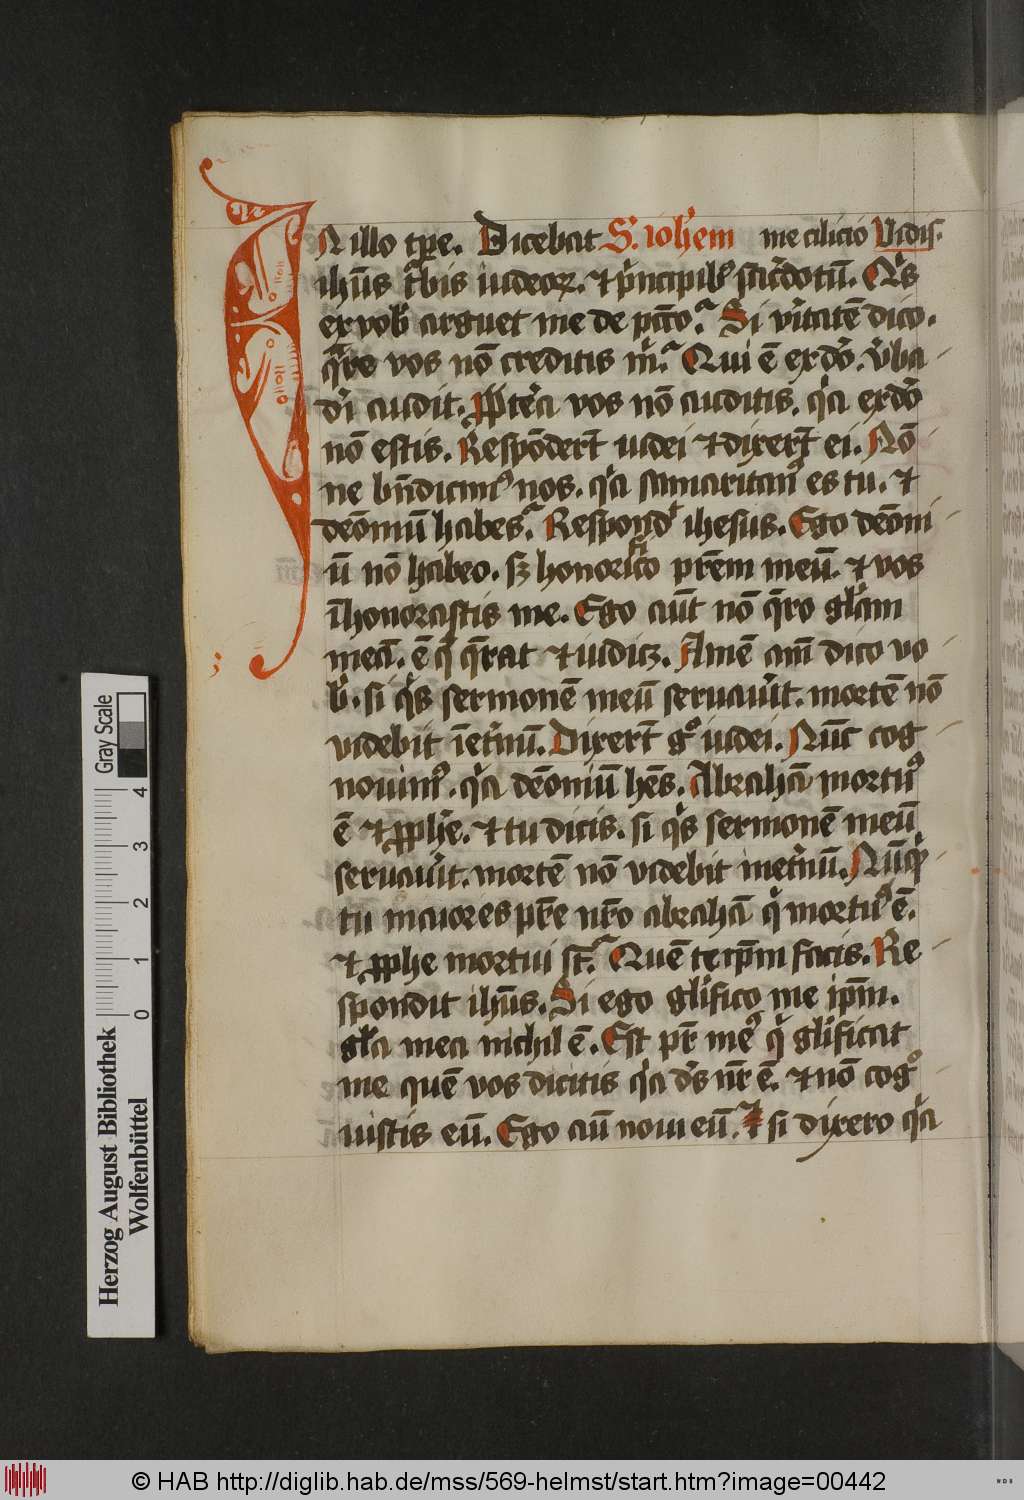 IN illo tp̄e. Dicebat S. ioh̄em me cilicio Vidis.
ihūs t͛bis iudeoꝝ. ⁊ p͛ncipib⁹ sac͛dotū. Q͛s
ex vob̄ arguet me de pc̄co. Si v͛itatē dico.
q̄re vos nō creditis m͛. Qui ē ex dō. v͛ba
dī audit. Ꝓpt͛ea vos nō auditis. q͛a ex dō
nō estis. Respōder̄t iudei ⁊ dixer̄t ei. Nō
ne bn̄dicim⁹ nos. q͛a samaritan⁹ es tu. ⁊
demōniū habes. Respond̄t ihesus. Ego demōni
ū nō habeo. sꝫ honorīco pr̄em meū. ⁊ vos
īhonorastis me. Ego aūt nō q̄ro gl̄am
meā. ē q͛ q̄rat ⁊ iudicꝫ. Amē am̄ dico vo
b̄. si q͛s sermonē meū seruau͛it. mortē nō
videbit īet͛nū. Dixer̄t g° iudei. Nūc cog
nouim⁹. q͛a demōniū hēs. Abrahā mortu⁹
ē ⁊ ꝓph̄e. ⁊ tu dicis. si q͛s sermonē meū
seruau͛it. mortē nō videbit inet͛nū. Nūq͛d
tu maior es pr̄e nr̄o abrahā q͛ mortu⁹ ē.
⁊ ꝓphe mortui st̄. Quē te ip̄m facis. Re
spondit ihūs. Si ego gl̄ifico me ip̄m.
gl̄a mea nichil ē. Est pr̄ me⁹ q͛ gl̄ificat
me quē vos dicitis q͛a ds̄ nr̄ ē. ⁊ nō cog°
uistis eū. Ego aū noui eū. ⁊ si dixero q͛a
Gray Scale
4 3 2 1 0
Herzog August Bibliothek
Wolfenbüttel
© HAB http://diglib.hab.de/mss/569-helmst/start.htm?image=00442